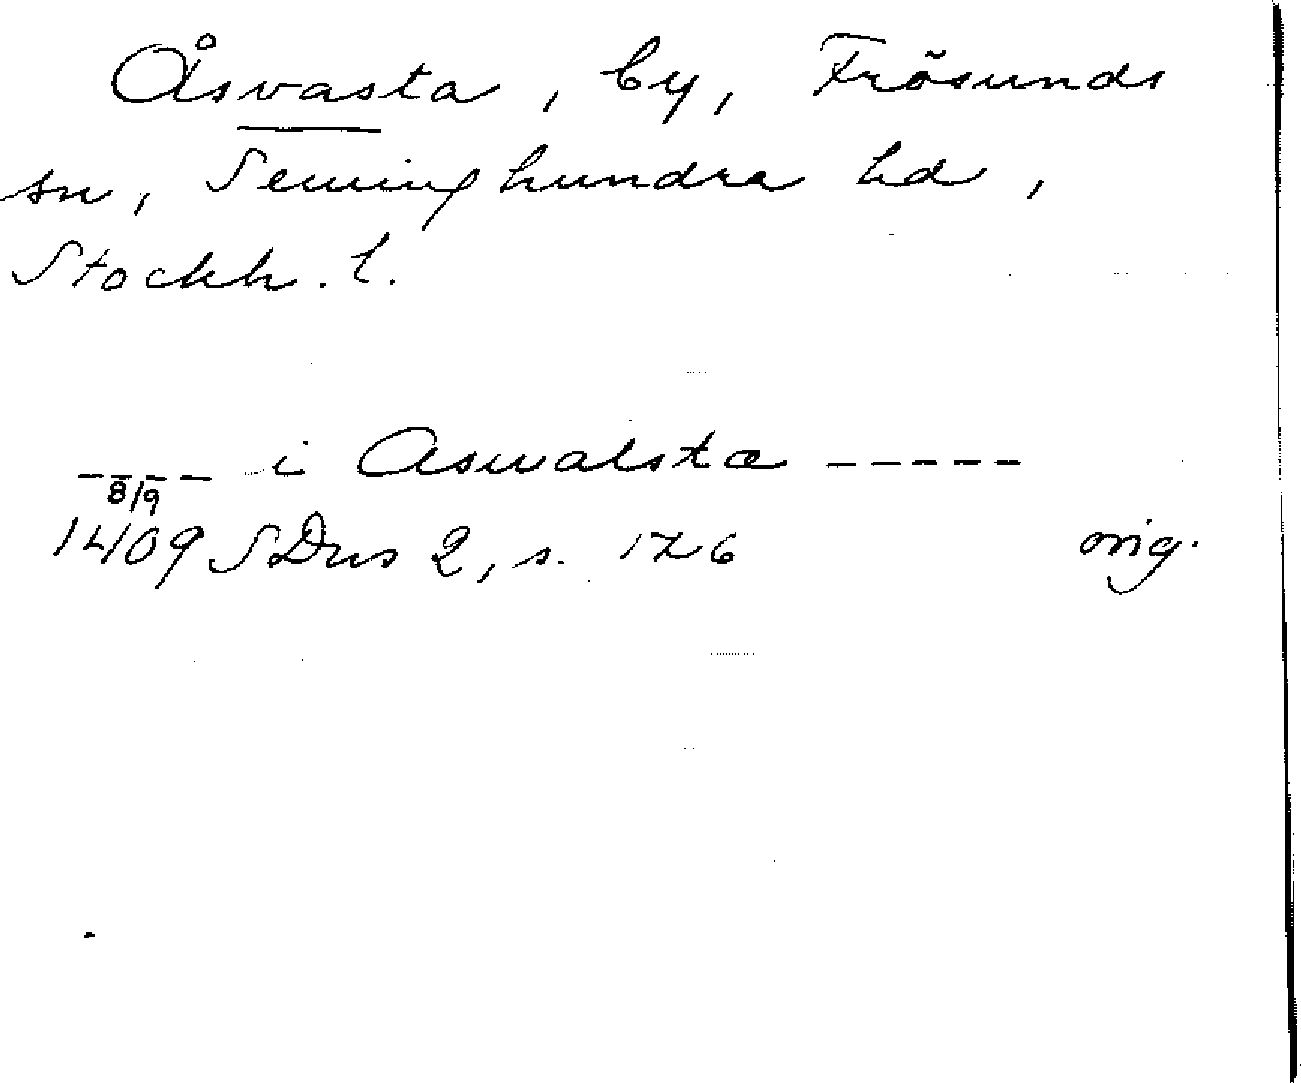 Åsvasta, by, Frösunds
sn, Seminghundra hd,
Stockh. l.
---- i Aswalsta -----
8/9
1409 SDns 2, s. 176 orig.